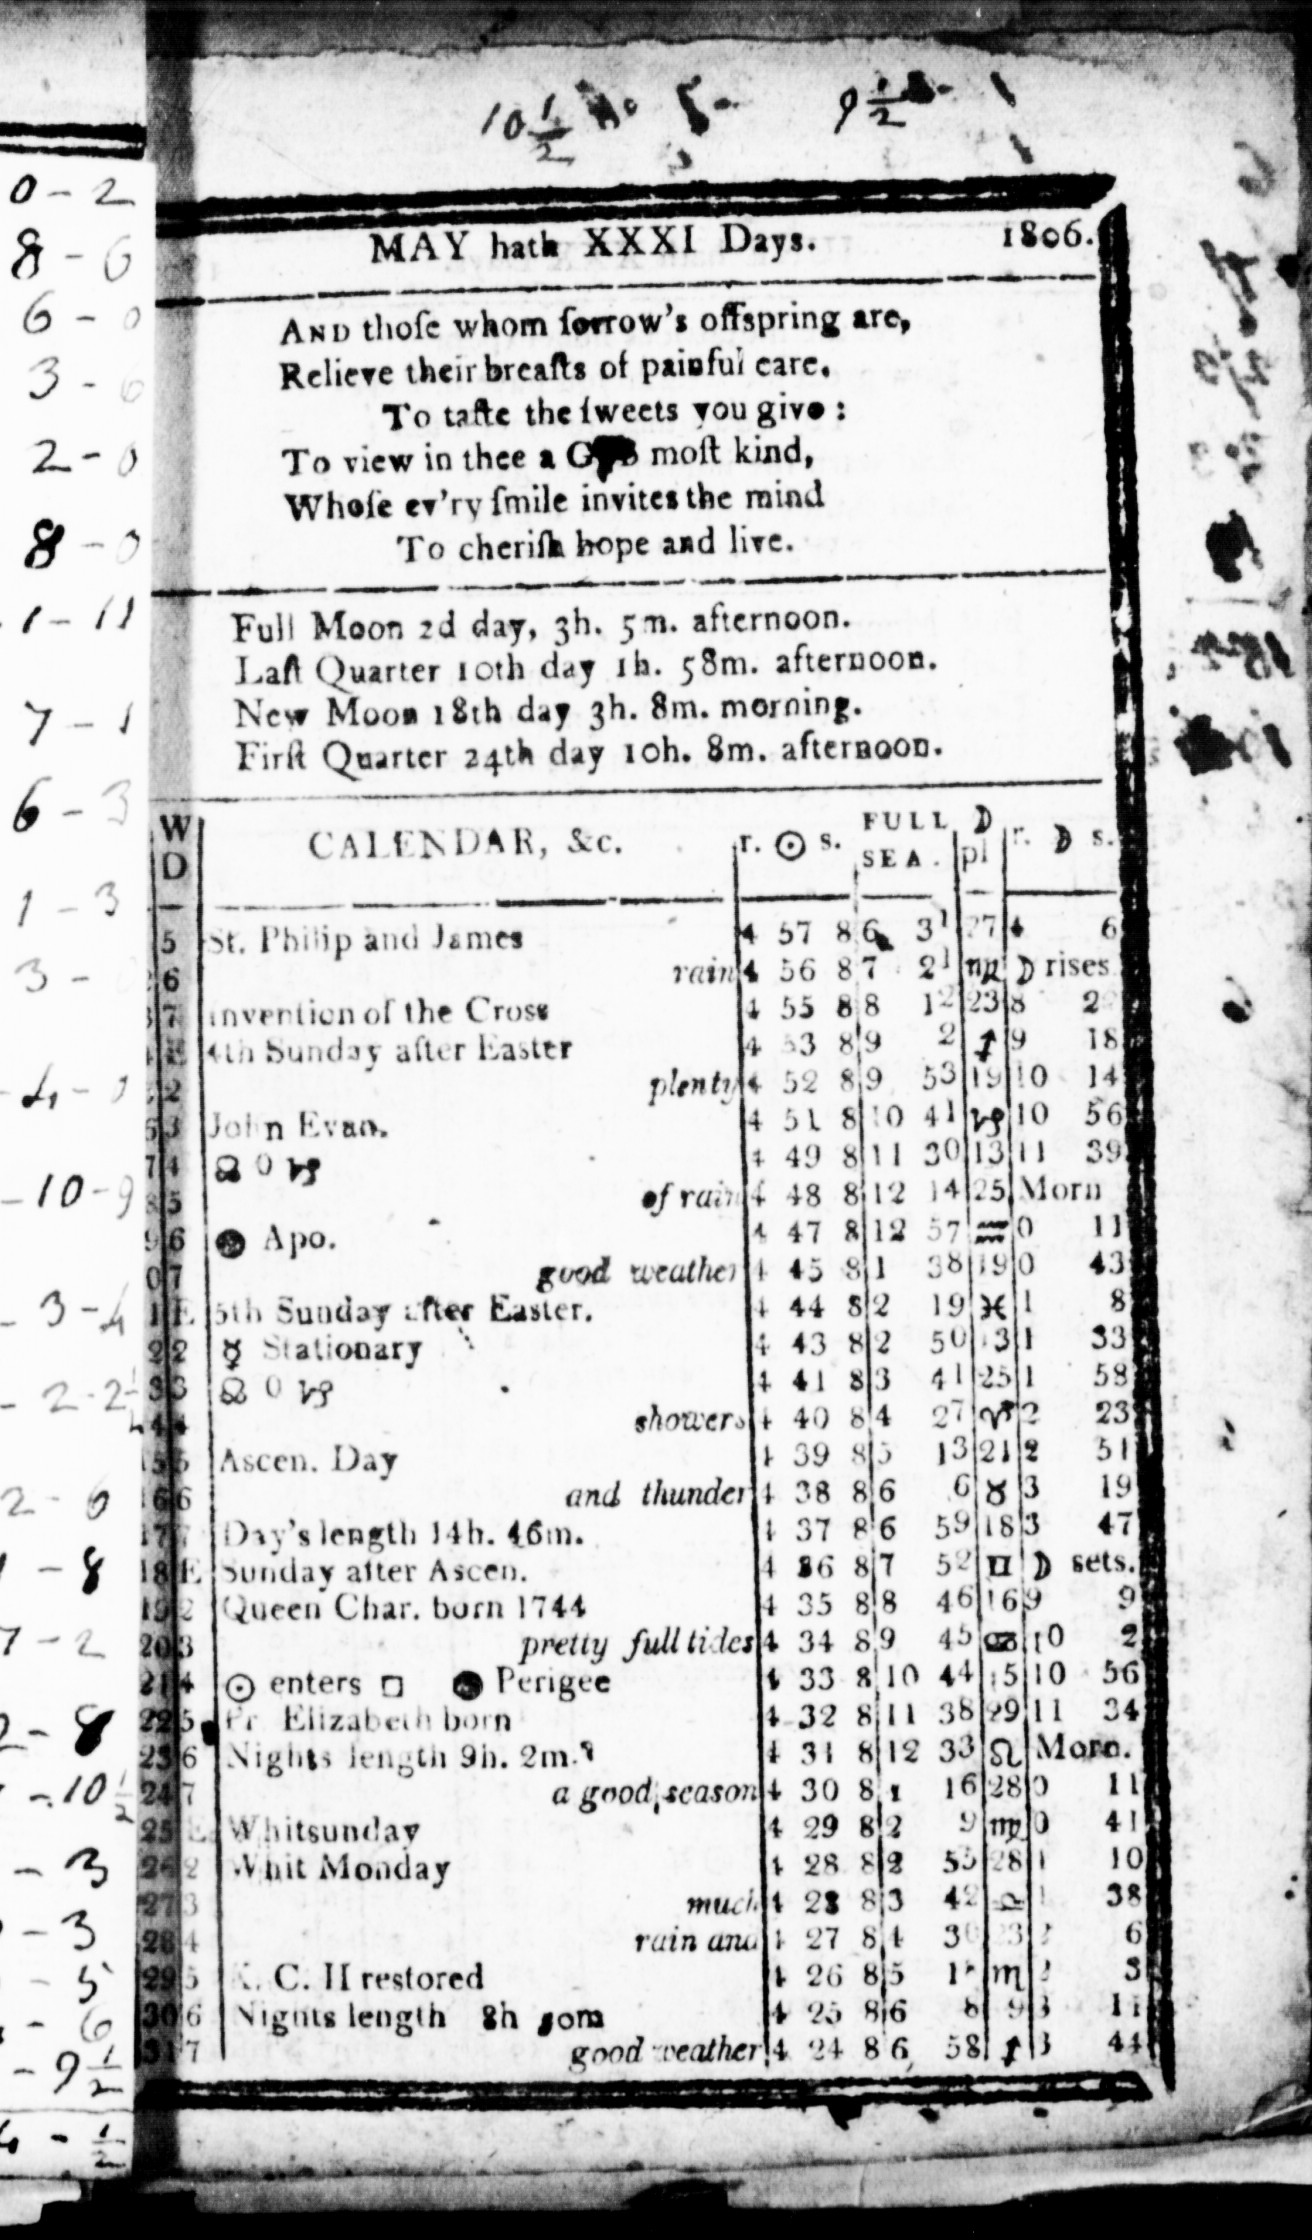 10 1/2
9 1/2
MAY hath XXXI Days. 1806.
AND thoſe whom ſorrow's offspring are,
Relieve their breaſts of painful care,
To taſte the ſweets you give :
To view in thee a moſt kind,
Whoſe ev'ry ſmile invites the mind
To cheriſh hope and live.
Full Moon 2d day, 3h. 5m. afternoon.
Laſt Quarter 10th day 1h. 58m. afternoon.
New Moon 18th day 3h. 8m. morning.
Firſt Quarter 24th day 10h. 8m. afternoon.
W D CALENDAR, &c. r. ☉ s. FULL SEA. ☽ pl r. ☽ s.
5 St. Philip and James 4 57 8 6 31 27 4 6
6 rain 4 56 8 7 21 ♏ ☽ rises
7 Invention of the Cross 4 55 8 8 12 23 8
E 4th Sunday after Easter 4 53 8 9 2 ♐ 9 18
2 plenty 4 52 8 9 53 19 10 14
6 3 John Evan. 4 51 8 10 41 ♑ 10 56
7 4 ☊ 0 ♑ 4 49 8 11 30 13 11 39
8 5 of rain 4 48 8 12 14 25 Morn
9 6 ● Apo. 4 47 8 12 57 ♒ 0 11
0 7 good weather 4 45 8 1 38 19 0 43
1 E 5th Sunday after Easter. 4 44 8 2 19 ♓ 1 8
2 2 ☿ Stationary 4 43 8 2 50 13 1 33
3 3 ☊ 0 ♑ 4 41 8 3 41 25 1 58
4 4 showers 4 40 8 4 27 ♈ 2 23
15 5 Ascen. Day 4 39 8 5 13 21 2 51
16 6 and thunder 4 38 8 6 6 ♉ 3 19
17 7 Day's length 14h. 46m. 4 37 8 6 59 18 3 47
18 E Sunday after Ascen. 4 36 8 7 52 ♊ ☽ sets.
19 2 Queen Char. born 1744 4 35 8 8 46 16 9 9
20 3 pretty full tides 4 34 8 9 45 ♋ 10 2
21 4 ☉ enters □ ● Perigee 4 33 8 10 44 15 10 56
22 5 Pr. Elizabeth born 4 32 8 11 38 29 11 34
23 6 Nights length 9h. 2m. 4 31 8 12 33 ♌ Morn.
24 7 a good season 4 30 8 1 16 28 0 11
25 E Whitsunday 4 29 8 2 9 ♍ 0 41
26 2 Whit Monday 4 28 8 2 55 28 1 10
27 3 much 4 28 8 3 42 ♎ 1 38
28 4 rain and 4 27 8 4 30 23 2 6
29 5 K. C. II restored 4 26 8 5 ♏ 2 3
30 6 Nights length 8h 50m 4 25 8 6 8 9 3 11
31 7 good weather 4 24 8 6 58 ♐ 3 44
0 - 2
8 - 6
6 - 0
3 - 6
2 - 0
8 - 0
1 - 11
7 - 1
6 - 3
1 - 3
3 -
- 4 - 0
- 10 - 9
- 3 - 4
- 2 - 2
2 - 6
- 8
7 - 2
2 - 8
- 10 1/2
- 3
- 3
- 5
- 6
- 9 1/2
4 - 1/2